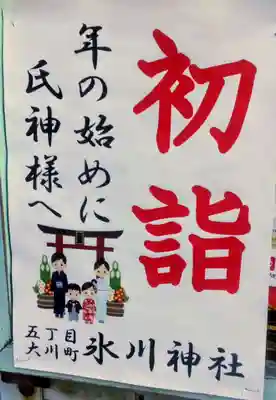 初詣
年の始めに
氏神様へ
五丁目
大川町
氷川神社